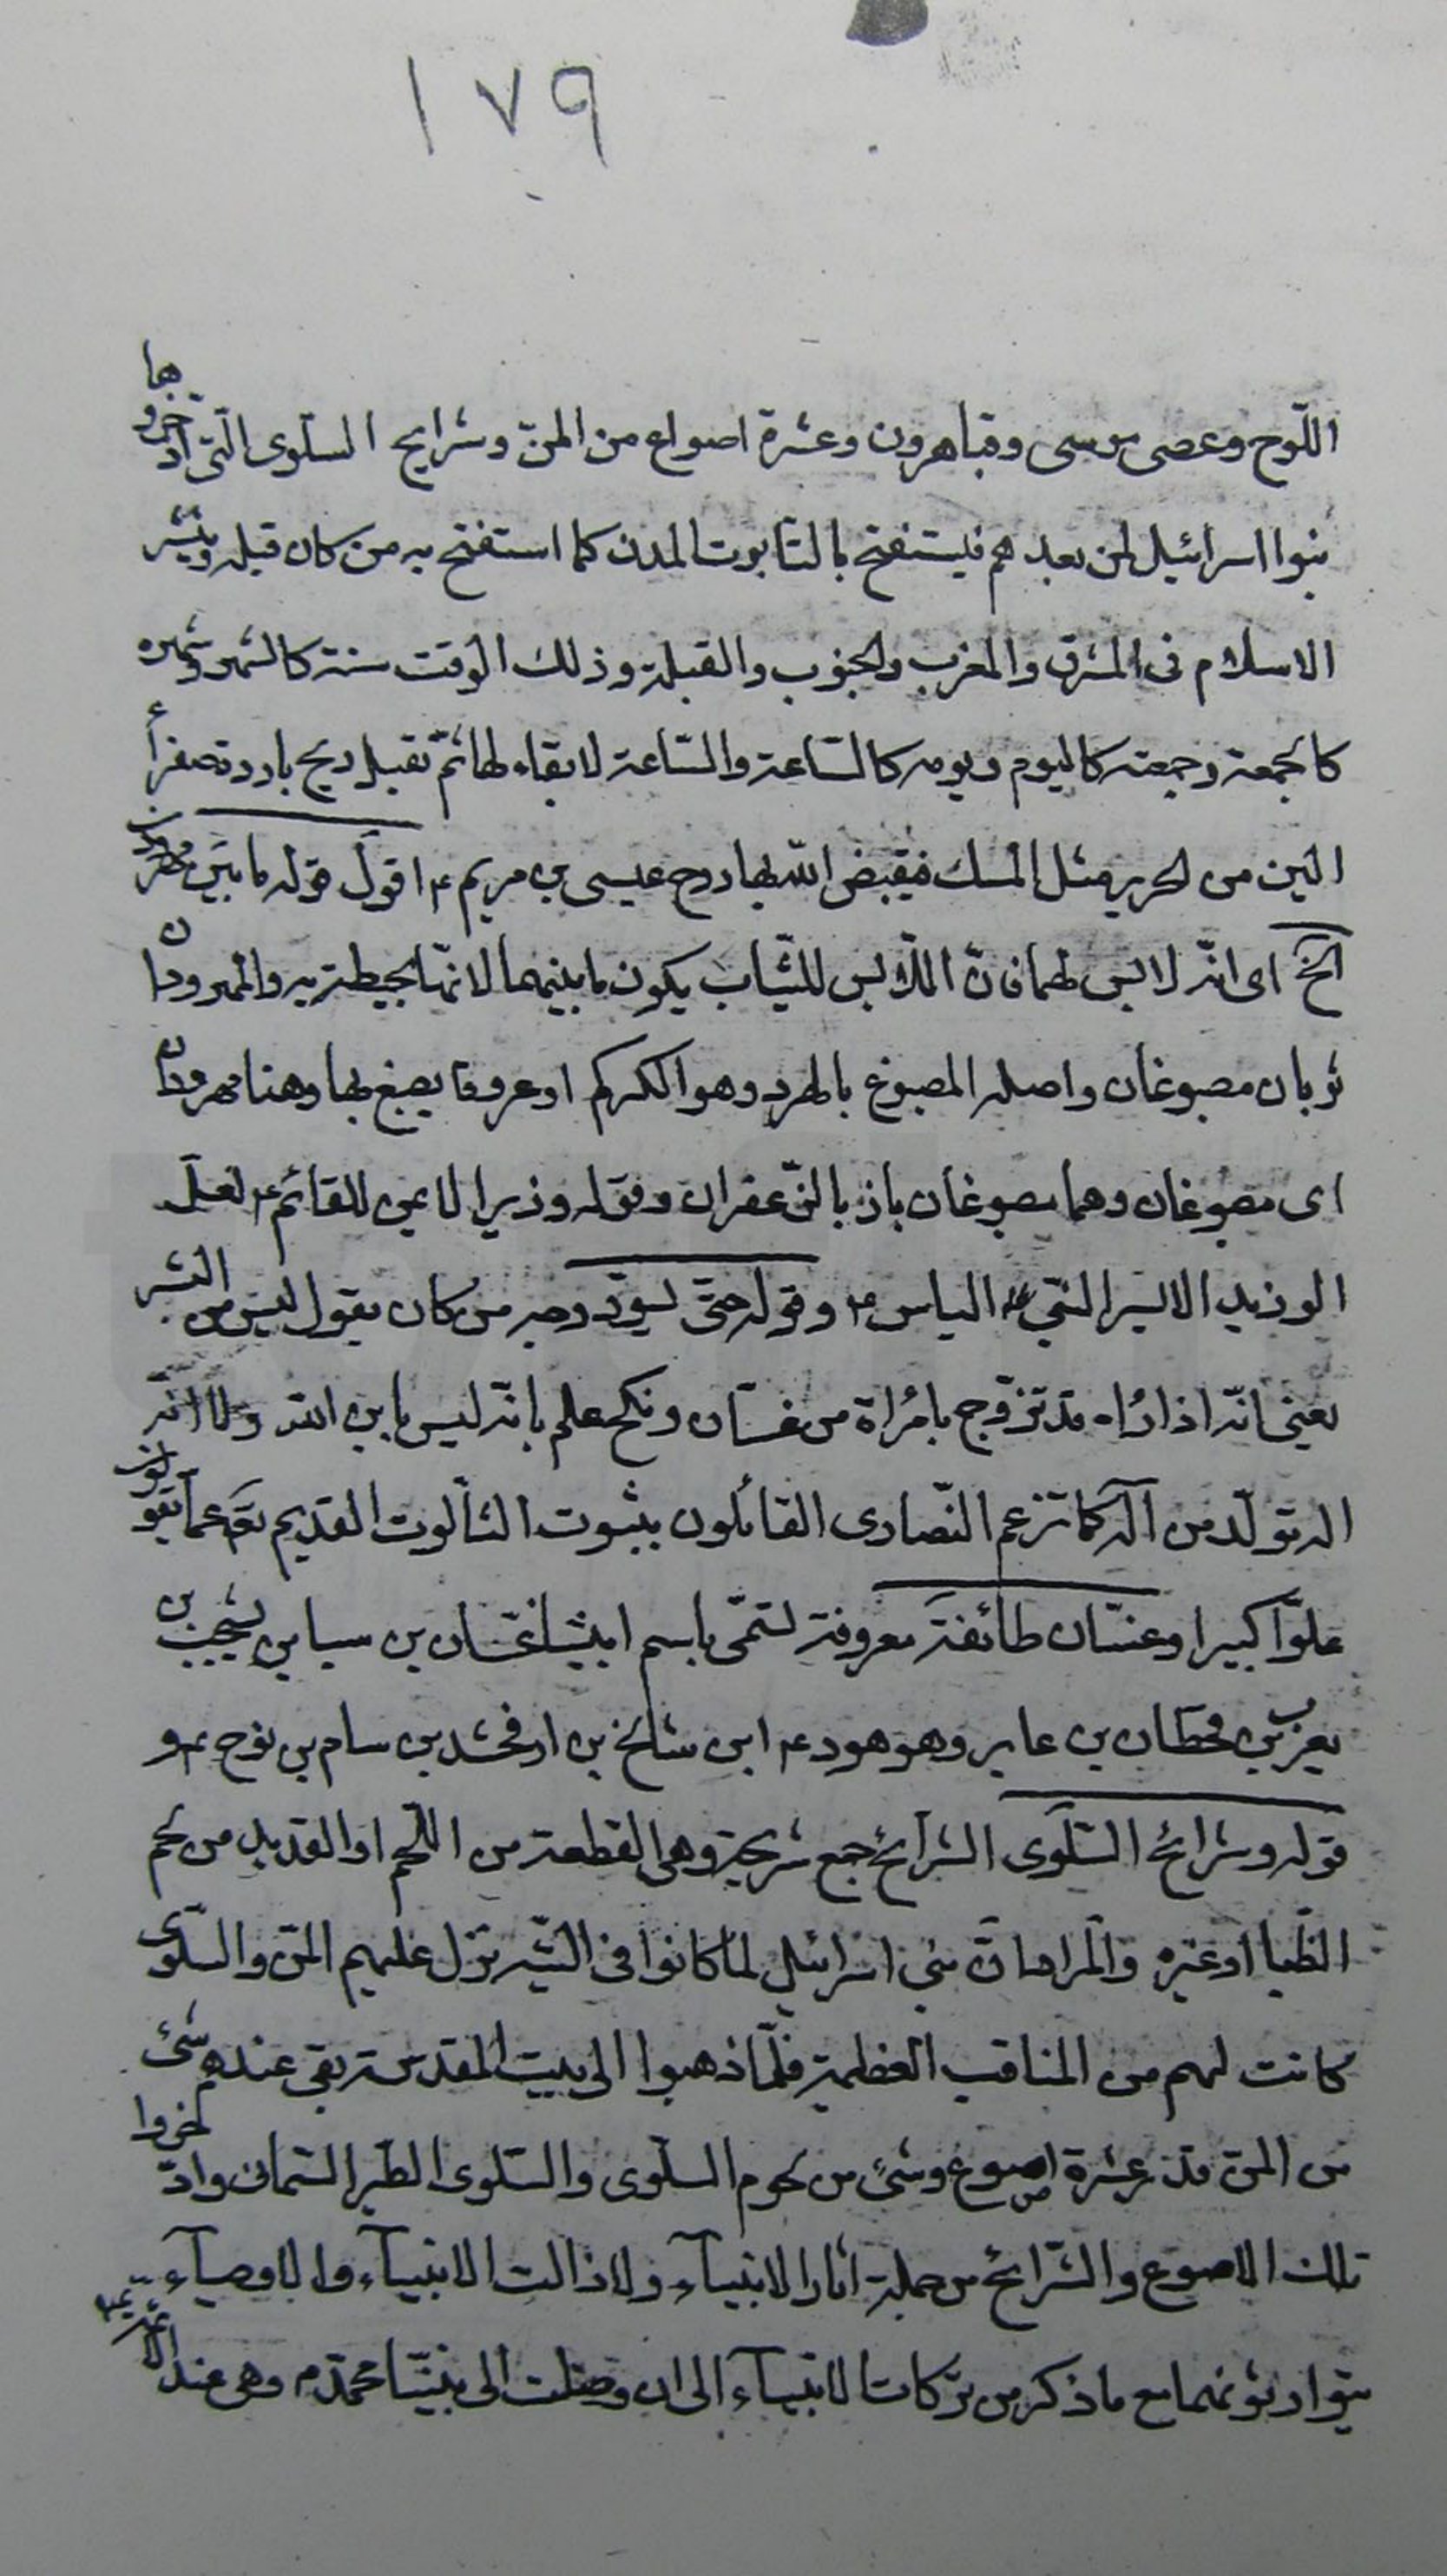 ١٧٩
اللّوح وعصى موسى وقبا هرون وعشرة اصواع من المنّ وشرايح السلوى الّتى ادّخروها
بنوا اسرائيل لمن بعدهم فيستفتح بالتابوت المدن كما استفتح به من كان قبله وينشر
الاسلام فى المشرق والمغرب والجنوب والقبلة وذلك الوقت سنته كالشهر وشهره
كالجمعة وجمعته كاليوم ويومه كالساعة والسّاعة لا بقاء لها ثمّ تقبل ريح باردة صفراء
الين من الحرير مثل المسك فيقبض اللّه بها روح عيسى بن مريم ع اقول قوله ما بين مهرودتين
الخ اى انّه لابس لهما فانّ الملابس للثّياب يكون ما بينهما لانّها محيطة به والمهرودان
ثوبان مصبوغان واصله المصبوغ بالهرد وهو الكركم او عروق يصبغ بها وهنا مهرودان
اى مصبوغان وهما مصبوغان بالزّعفران وقوله وزيرا لايمن للقائم ع لعلّ
الوزير الايسر النّبي الياس ع وقوله حتّى يسودّ وجه من كان يقول ليس من البشر
يعنى انّه اذا رٔاه قد تزوّج بامرٔاة من غسّان ونكح علم بانّه ليس بابن اللّه ولا انّه
اله تولّد من اله كما تزعم النّصارى القائلون بثبوت الثالوت القديم تعه عما يقولون
علوّا كبيرا وغسّان طائفة معروفة تسمّى باسم ابيها غسّان بن سبا بن يشجب بن
يعرب بن قحطان بن عابر وهو هود ع ابن شالخ بن ارفخشد بن سام بن نوح ع و
قوله وشرائح السّلوى الشّرائح جمع شريحة وهى القطعة من اللّحم او القديد من لحم
الظّبا او غيره والمراد انّ بنى اسرائيل لمّا كانوا فى التّيه نزل عليهم المنّ والسّلوى
كانت لهم من المناقب العظيمة فلمّا ذهبوا الى بيت المقدس بقى عندهم شئ
من المنّ قدر عشرة اصوع وشئ من لحوم السلوى والسّلوى الطّير السّمانى وادّخروا
تلك الاصوع والشّرائح من جملة اثار الانبيآء ولازالت الانبيآء والاوصيآء
يتوارثونها مع ما ذكر من بركات الانبيآء الى ان وصلت الى نبيّنا محمّد م وهى عند الائمّة